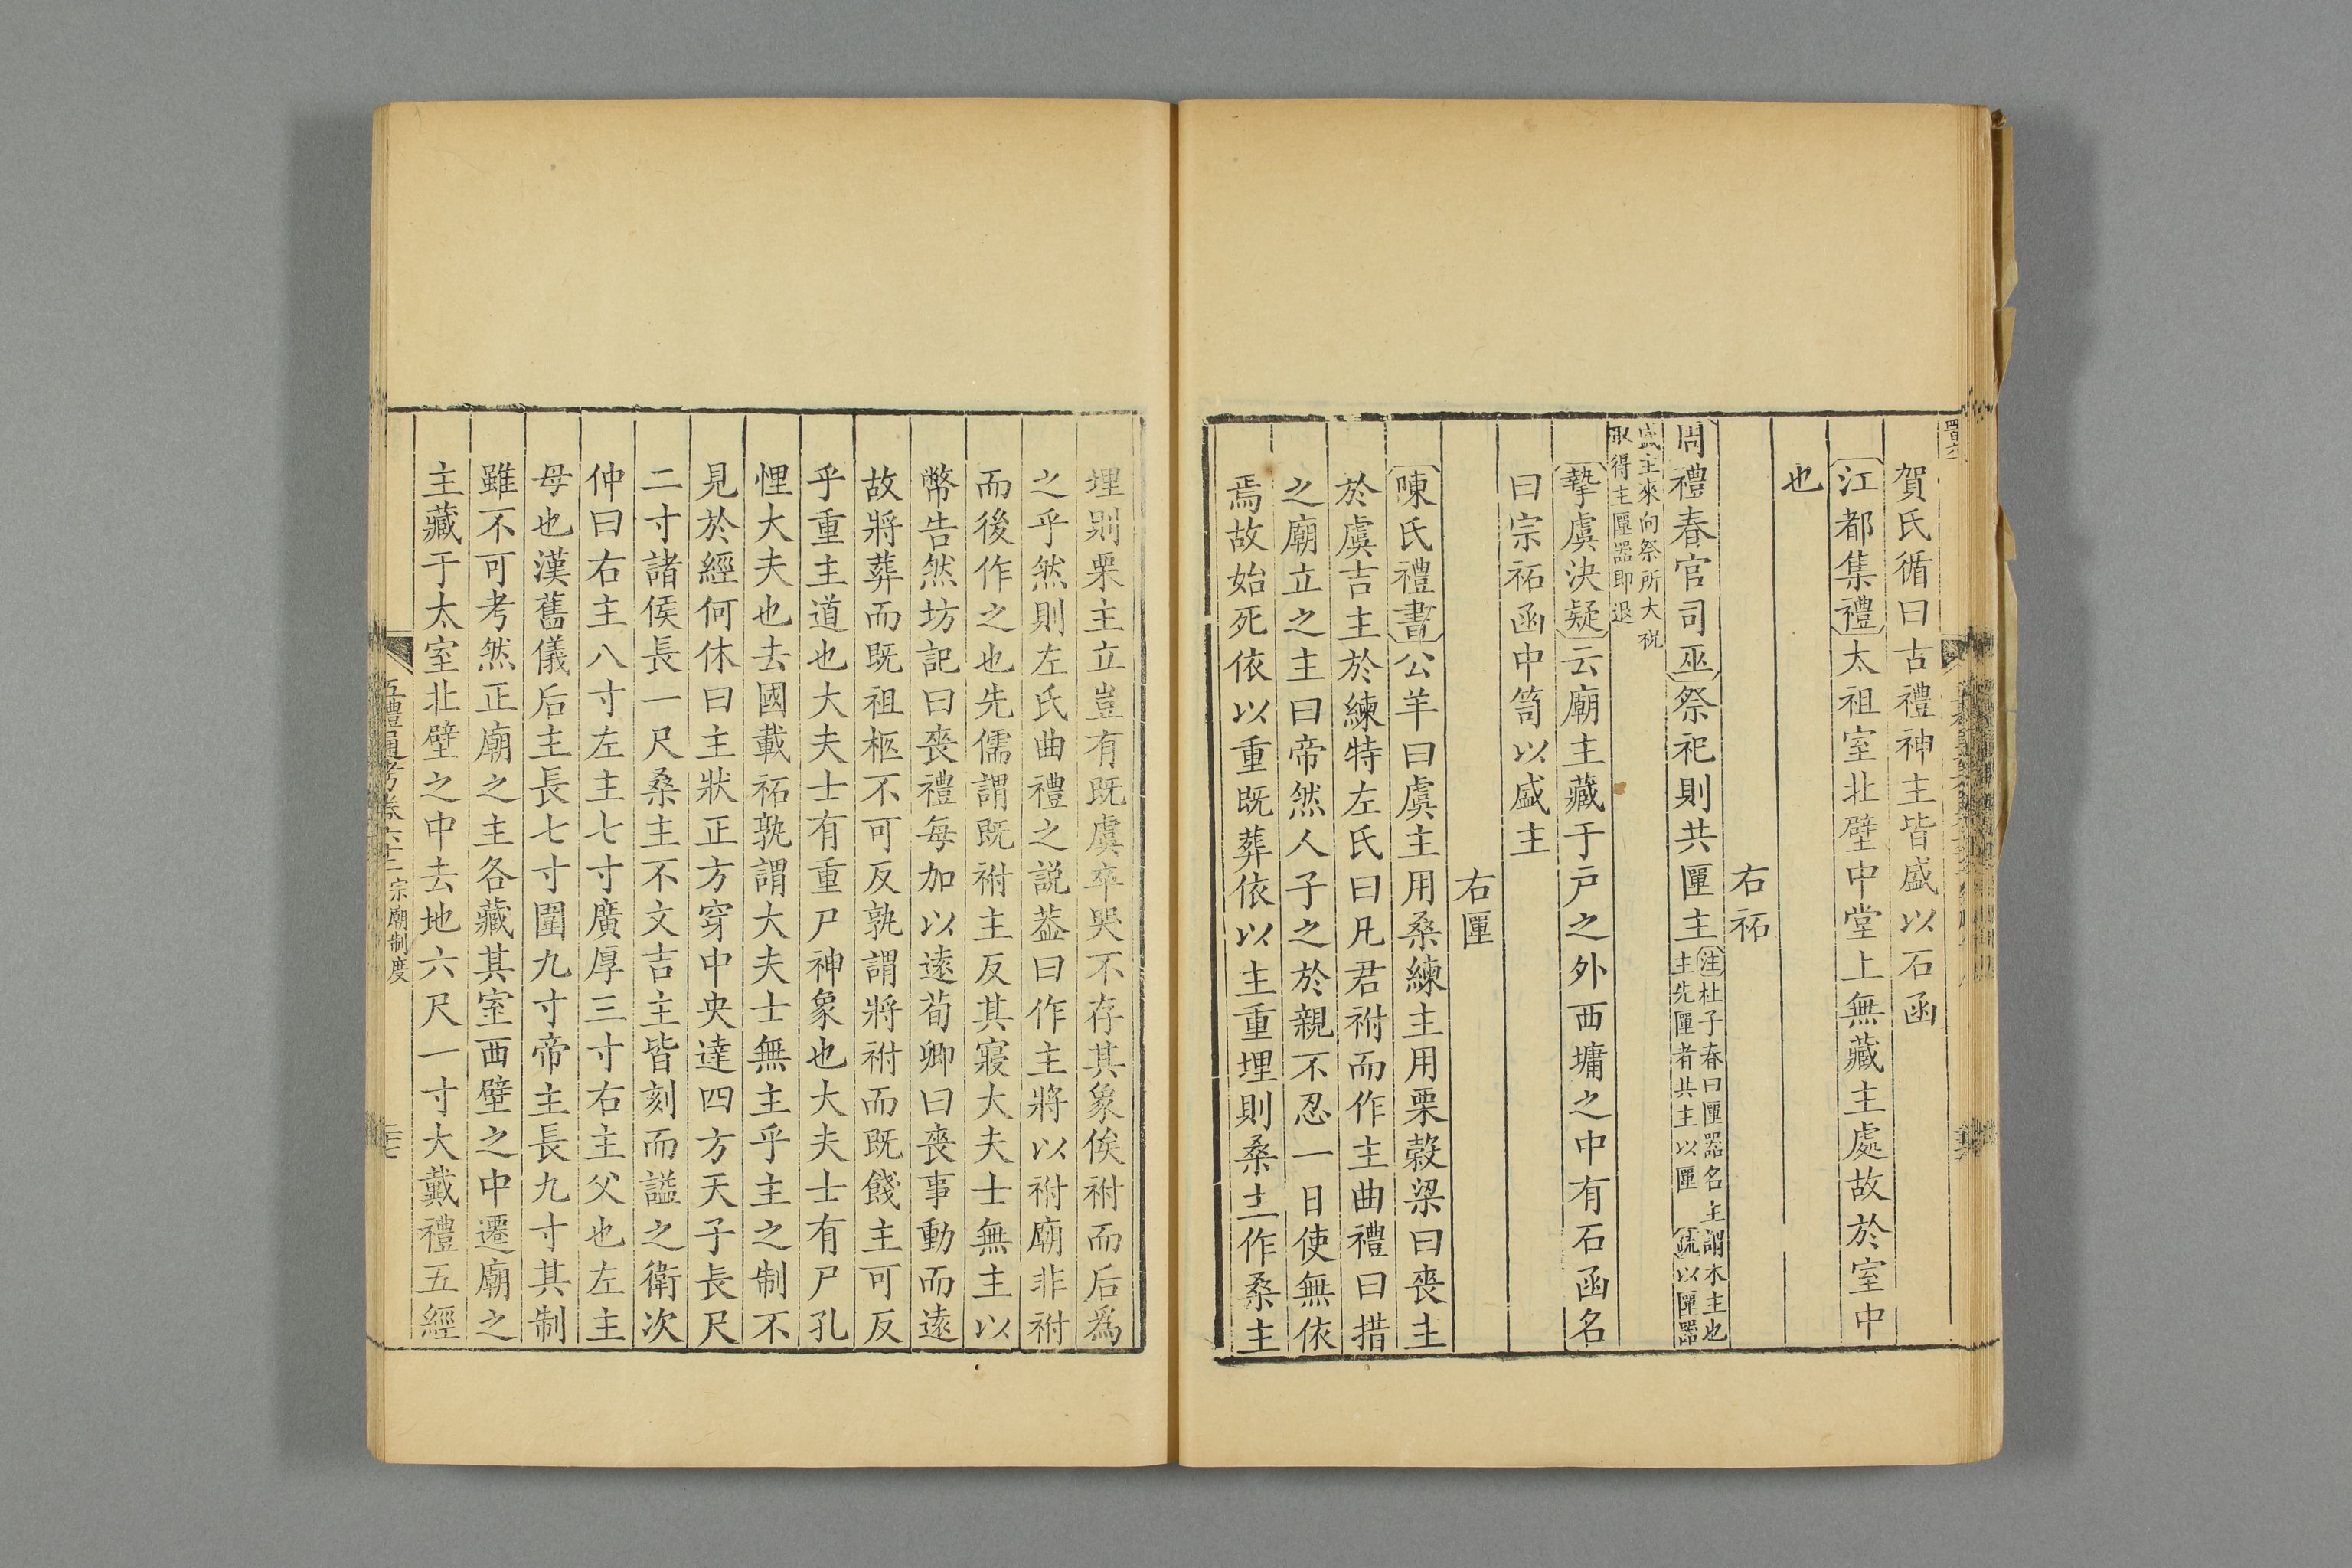 賀氏循曰古禮神主皆盛以石函
江都集禮太祖室北壁中堂上無藏主處故於室中
也
右祏
周禮春官司巫祭祀則共匰主注杜子春曰匰器名主謂木主也
主先匰者共主以匰 疏以匰器
盛主來向祭所大祝
取得主匰器即退
摯虞決疑云廟主藏于戸之外西墉之中有石函名
曰宗祏函中笥以盛主
右匰
陳氏禮書公羊曰虞主用桑練主用栗穀梁曰喪主
於虞吉主於練特左氏曰凡君祔而作主曲禮曰措
之廟立之主曰帝然人子之於親不忍一日使無依
焉故始死依以重既葬依以主重埋則桑主作桑主
埋則栗主立豈有既虞卒哭不存其象俟祔而后為
之乎然則左氏曲禮之説葢曰作主將以祔廟非祔
而後作之也先儒謂既祔主反其寢大夫士無主以
幣告然坊記曰喪禮每加以遠荀卿曰喪事動而遠
故將葬而既祖柩不可反孰謂將祔而既餞主可反
乎重主道也大夫士有重尸神象也大夫士有尸孔
悝大夫也去國載祏孰謂大夫士無主乎主之制不
見於經何休曰主狀正方穿中央達四方天子長尺
二寸諸侯長一尺桑主不文吉主皆刻而謚之衛次
仲曰右主八寸左主七寸廣厚三寸右主父也左主
母也漢舊儀后主長七寸圍九寸帝主長九寸其制
雖不可考然正廟之主各藏其室西壁之中遷廟之
主藏于太室北壁之中去地六尺一寸大戴禮五經
五禮通考卷六十一 宗廟制度